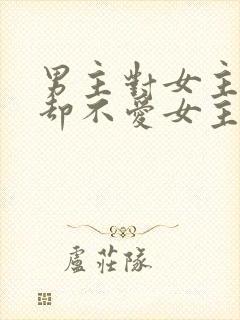 男主對女主
却不愛女主
盧莊隊